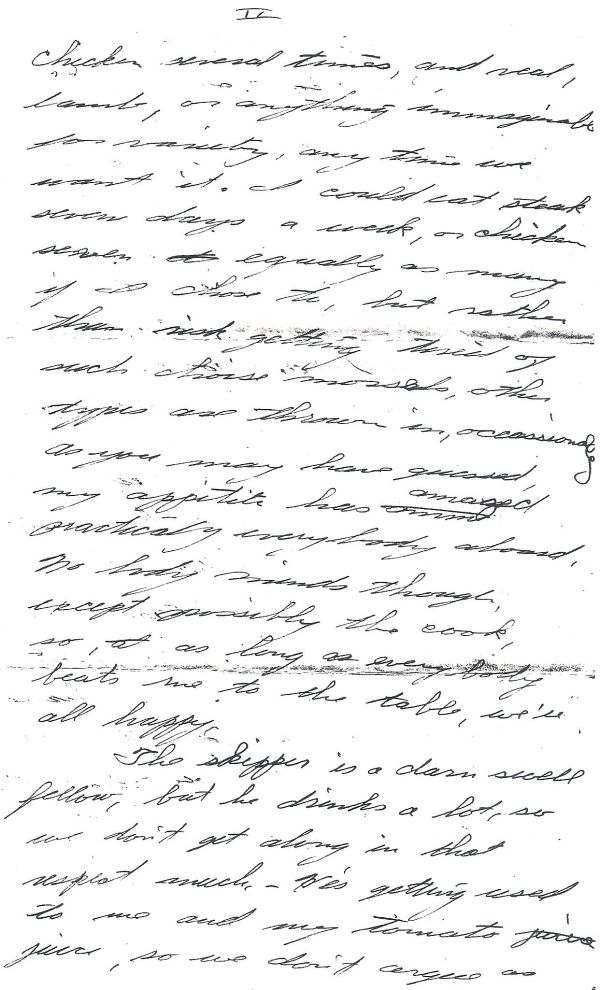 II
chicken several times, and veal,
lamb, or anything immaginable
for variety, any time we
want it. I could eat steak
seven days a week, or chicken
seven equally as many
if I chose to, but rather
than risk getting tired of
such choise morsels, other
types are thrown in, occassionaly
as you may have guessed,
my appitite has amazed
practically everybody aboard.
No body minds though,
except possibly the cook,
so, as long as every body
beats me to the table, we're
all happy.
The skipper is a darn swell
fellow, but he drinks a lot, so
we don't get along in that
respect much - He's getting used
to me and my tomato juice
juice, so we don't argue as